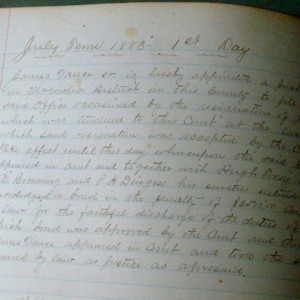 July Term 1883 1st Day
James Vance sr is hereby appointed a Just
in Magnolia District in this County to fill
said Office occasioned by the resignation of
which was tendered to this Court at the
which said resignation was accepted by the C
take effect until this day whereupon the said
appeared in Court and together with Hugh
R. Browning and E. A. Dingess his sureties entered
acknowledged a bond in the penalty of $
law for the faithful discharge of the duties of
Which bond was approved by the Court and the
James Vance appeared in Court and took the
scribed by law as Justice as aforesaid.